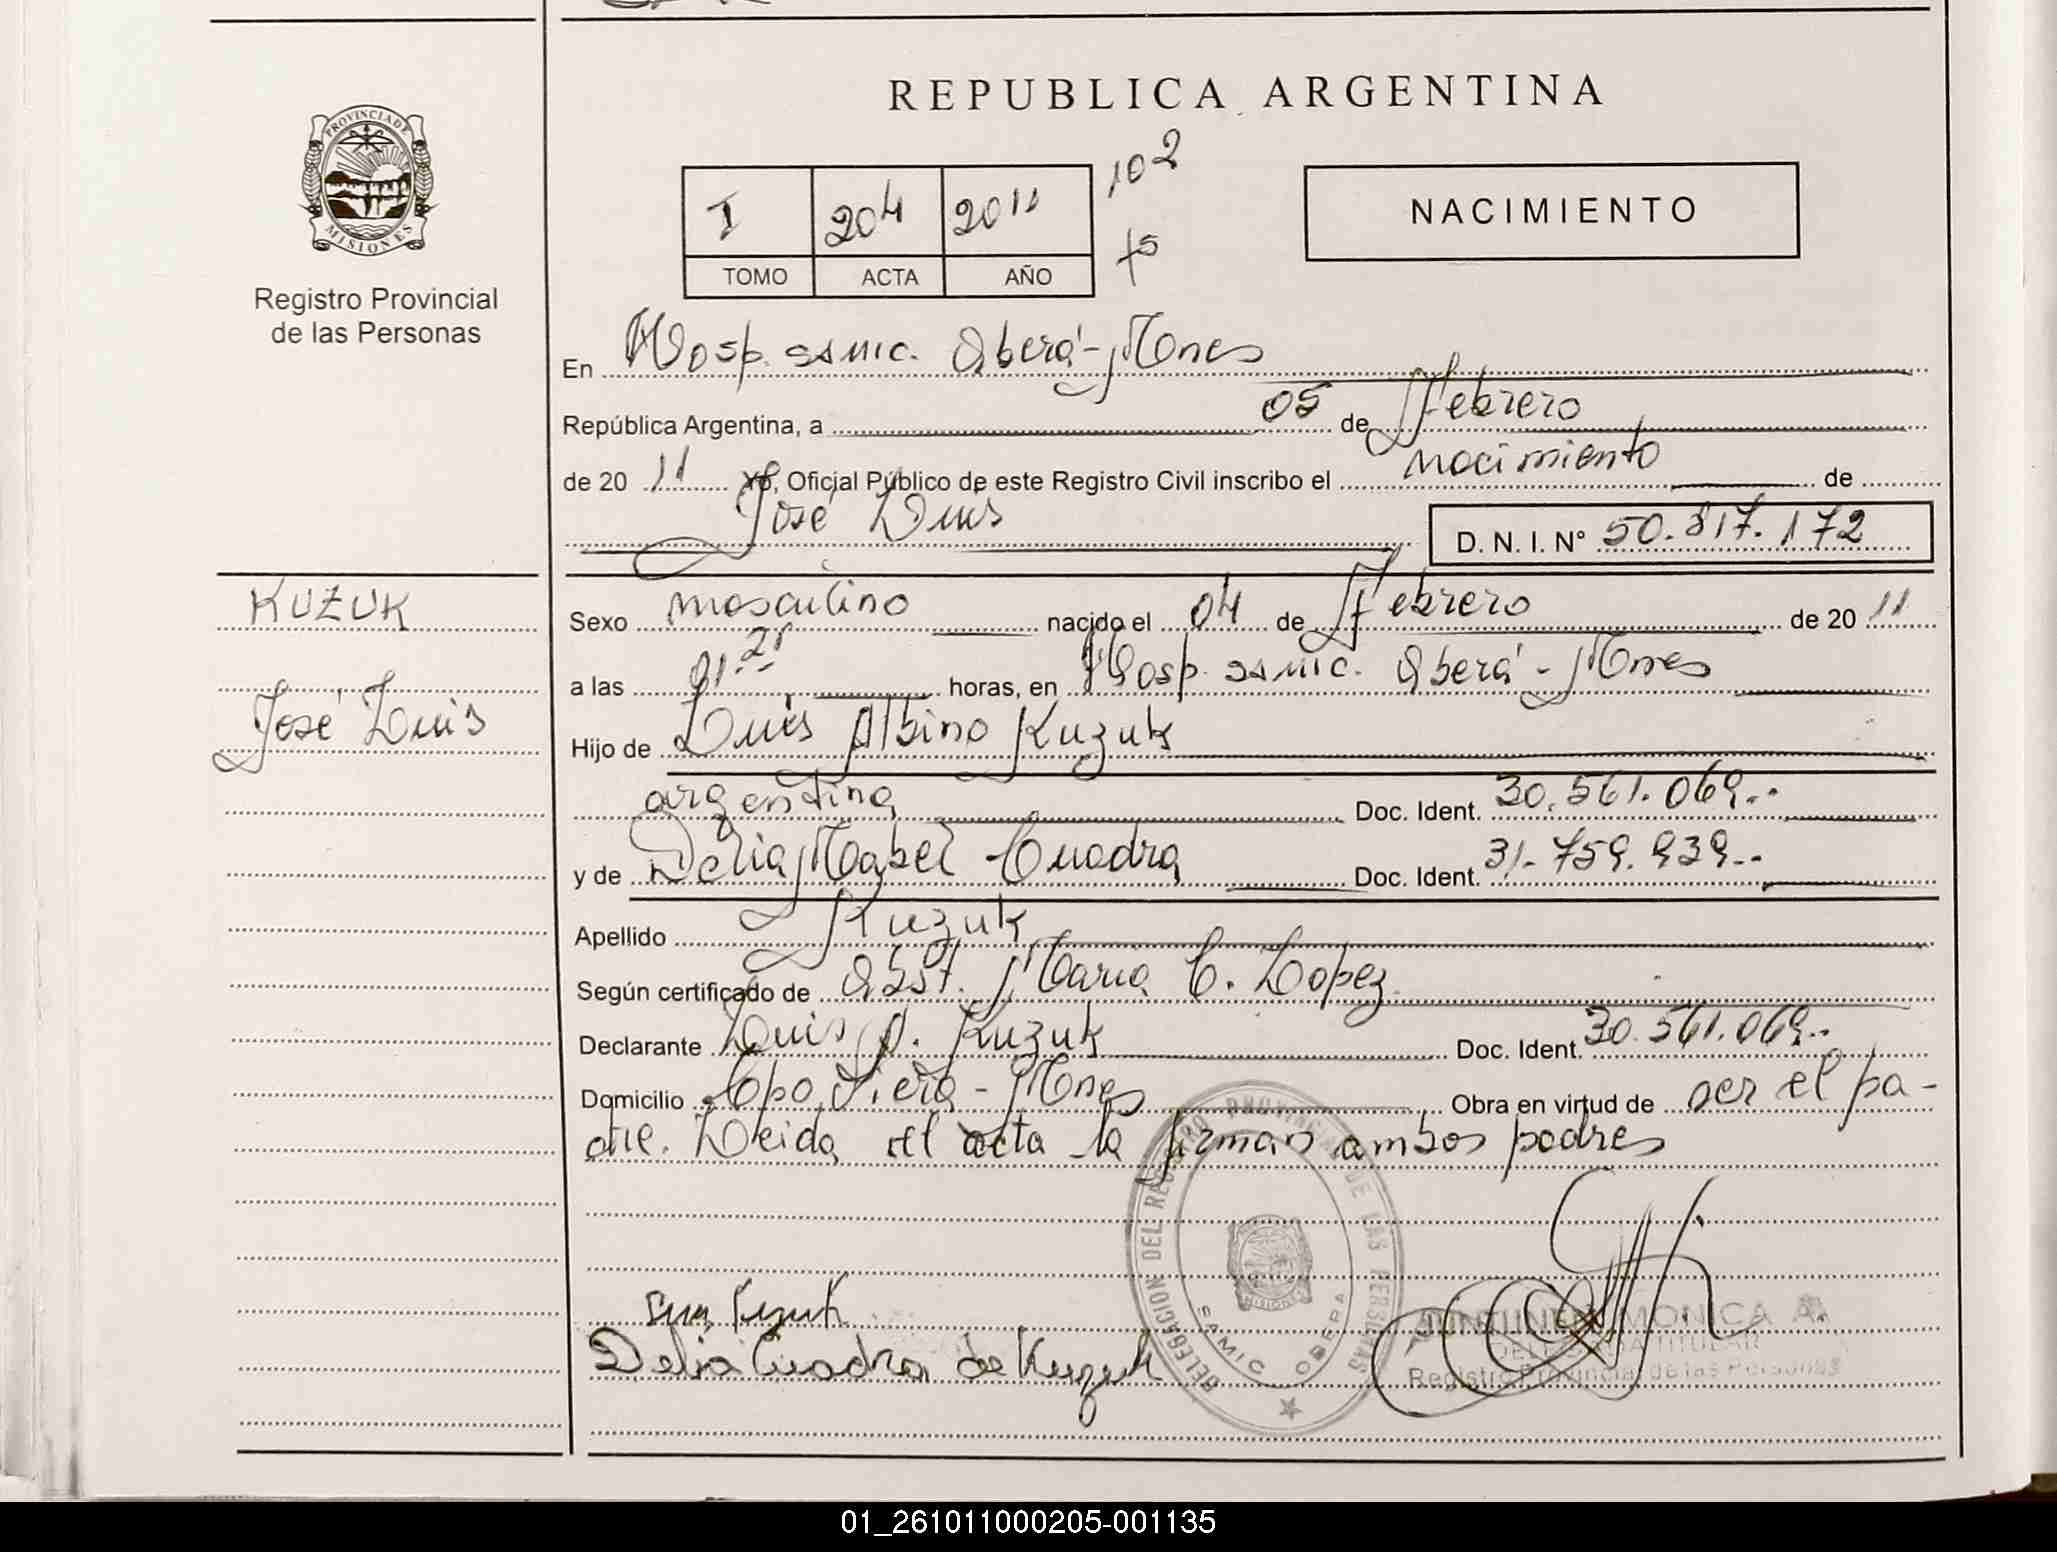 REPUBLICA ARGENTINA
PROVINCIA DE
MISIONES
Registro Provincial
de las Personas
I 204 2011 102
TOMO ACTA AÑO
NACIMIENTO
En Hosp. samic. Oberá-Mnes
República Argentina, a 05 de Febrero
de 20 11 Yo, Oficial Público de este Registro Civil inscribo el nacimiento de
José Luis D. N. I. Nº 50.817.172
KUZUK
José Luis
Sexo masculino nacido el 04 de Febrero de 20 11
a las 01.21 horas, en Hosp. samic. Oberá-Mnes
Hijo de Luis Albino Kuzuk
argentina Doc. Ident. 30.561.069..
y de Delia Mabel Cuadra Doc. Ident. 31.759.939..
Apellido Kuzuk
Según certificado de Obst. Maria C. Lopez
Declarante Luis A. Kuzuk Doc. Ident. 30.561.069..
Domicilio Cpo. Viera-Mnes Obra en virtud de ser el pa-
dre. Leida el acta la firman ambos padres
DELEGACION DEL REGISTRO PROVINCIAL DE LAS PERSONAS
SAMIC OBERA
MISIONES
Kuzuk
Delia Cuadra de Kuzuk
MONICA A.
DELEGADA TITULAR
Registro Provincial de las Personas
01_261011000205-001135